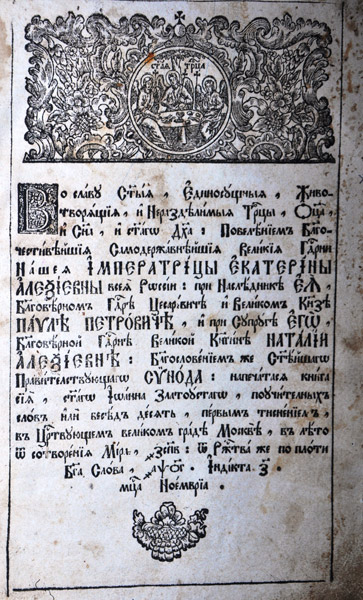 СТ҃АѦ ТРЦ҃А
Во славу Ст҃ыѧ, Единосущныѧ, Живо-
творѧщїѧ, и Нераздѣлимыѧ Трⷪ҇цы, Оц҃а,
и Сн҃а, и ст҃агѡ Дх҃а: Повелѣнїемъ Благо-
честивѣйшїѧ Самодержавнѣйшїѧ Великїѧ Гдⷭ҇рни
Нашеѧ ІМПЕРАТРИЦЫ ЕКАТЕРІНЫ
АЛЕѮІЕВНЫ всеѧ Россїи: при Наслѣдникѣ ЕѦ,
Благовѣрномъ Гдⷭ҇рѣ Цесаревичѣ и Великомъ Кнѧзѣ
ПАѴЛѢ ПЕТРОВИЧѢ, и при Супругѣ ЕГѠ,
Благовѣрной Гдⷭ҇рнѣ Великой Кнѧгинѣ НАТАЛІИ
АЛЕѮІЕВНѢ: Благословенїемъ же Ст҃ѣйшагѡ
Правителствующагѡ СѴНОДА: напечатасѧ книга
сїѧ, ст҃агѡ Іѡанна Златоустагѡ, поучительныхъ
словъ или бесѣдъ десѧть, первымъ тисненїемъ,
въ Црⷭ҇твующемъ великомъ градѣ Москвѣ, въ лѣто
ѿ сотворенїѧ Мїра, ҂зсп҃в: ѿ Ржⷭ҇тва же по плоти
Бг҃а Слова, ҂аѱо҃г. Індїкта з҃.
мцⷭ҇а Ноемврїа.